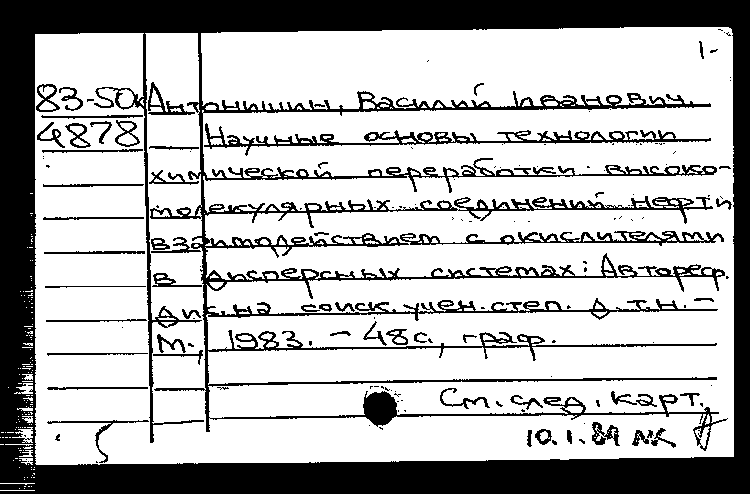 1-
83-50к Антонишин, Василий Иванович.
4878 Научные основы технологии
химической переработки высоко-
молекулярных соединений нефти
взаимодействием с окислителями
в дисперсных системах: Автореф.
дис. на соиск. учен. степ. д.т.н. -
М., 1983. - 48с., граф.
См. след. карт.
10.1.84 NK
5